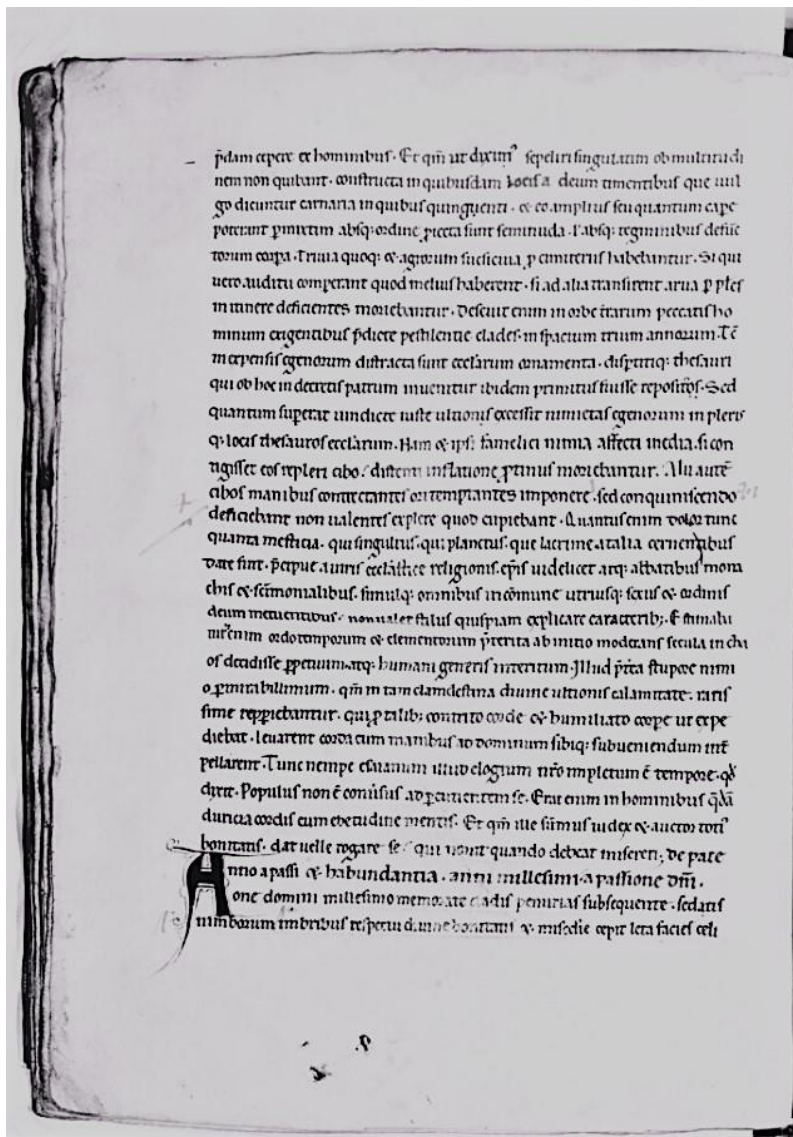 p̄dam cepere ex hominibus. Et qm̄ ut diximꝰ sepeliri singulatim ob multitudi
nem non quibant. constructa in quibusdam locis a deum timentibus que uul
go dicuntur carnaria in quibus quingenti. & eo amplius seu quantum cape
poterant ꝑmixtim absq; ordine ꝓiecta sunt seminuda. ł absq; tegminibus defūc
torum corꝑa. Triuia quoq; & agrorum succiciua ꝓ cimiteriis habebantur. Si qui
uero auditu comperiant quod melius haberent. si ad alia transirent arua ꝑ ples
in itinere deficientes moriebantur. Deseuit enim in orbe t̄rarum peccatis ho
minum exigentibus p̄dicte pestilentie clades. in spacium trium annorum. Tc̄
in expensis egenorum distracta sunt ecclārum ornamenta. dispertitiq; thesauri
qui ob hoc in decretis patrum inuenitur ibidem primitus fuisse repositos. Sed
quantum superat uindicte iuste ultionis excessit nimietas egenorum in pleris
q; locis thesauros ecclārum. Nam & ipsi famelici nimia affecti inedia. si con
tigisset eos repleri cibo. distenti inflatione ꝓtinus moriebantur. Alii autē
cibos manibus contrectantes ori temptantes imponere. sed conquiniscendo
deficiebant non ualentes explere quod cupiebant. Quantus enim dolor tunc
quanta mesticia. qui singultus. qui planctus. que lacrime a talia cernentibus
date sint. p̄cipue a uiris ecclāstice religionis. ep̄is uidelicet atq; abbatibus mona
chis & sc̄imonialibus. simulq; omnibus in cōmune utriusq; sexus & ordinis
deum metuentibus. non ualet stilus quispiam explicare caracterib;. Estimaba
tur enim ordo temporum & elementorum p̄terita ab initio moderans secula in cha
os decidisse ꝑpetuum. atq; humani generis interitum. Illud p̄t̄ea stupore nimi
o ꝑmirabilimum. qm̄ in tam clamdestina diuine ultionis calamitate. raris
sime repꝑiebantur. qui ꝓ talib; contrito corde & humiliato corꝑe ut expe
diebat. leuarent corda cum manibus ad dominum sibiq; subueniendum int̄
pellarent. Tunc nempe esaianum illud elogium nrō impletum ē tempore. qđ
dixit. Populus non ē conūsus ad ꝑcutientem se. Erat enim in hominibus q̄dā
duricia cordis cum ebetudine mentis. Et qm̄ ille sūmus iudex & auctor totiꝰ
bonitatis. dat uelle rogare se. qui nouit quando debeat misereri; De pace
& habundantia. anni millesimi. a passione dn̄i.
Anno a passi
one domini millesimo memorate cladis penurias subsequente. sedatis
nimborum imbribus respectu diuine bonitatis & mis̄cdie cepit leta facies celi